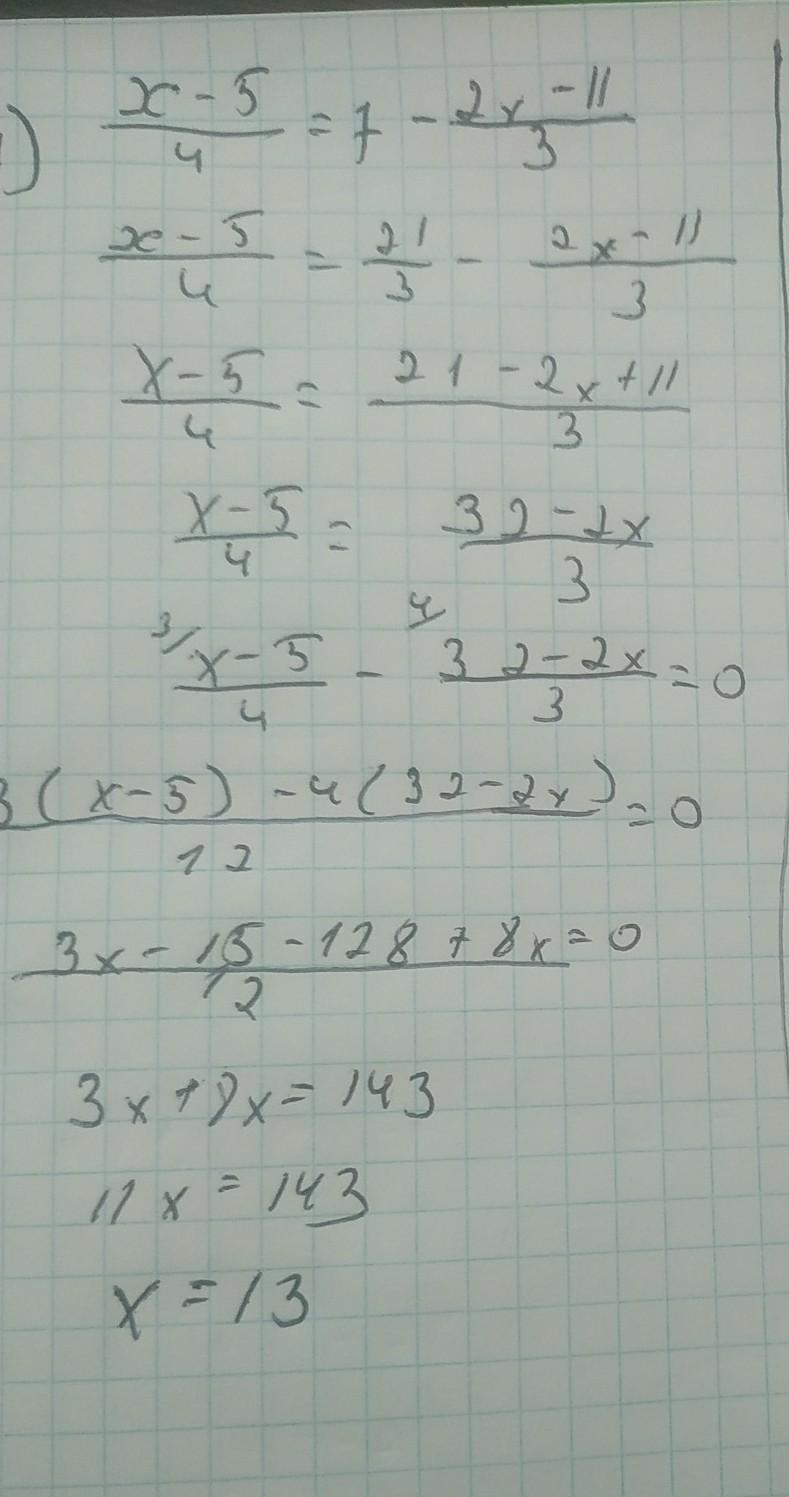 1) (x - 5)/4 = 7 - (2x - 11)/3
(x - 5)/4 = 21/3 - (2x - 11)/3
(x - 5)/4 = (21 - 2x + 11)/3
(x - 5)/4 = (32 - 2x)/3
3/ (x - 5)/4 - 4/ (32 - 2x)/3 = 0
(3(x - 5) - 4(32 - 2x))/12 = 0
(3x - 15 - 128 + 8x)/12 = 0
3x + 8x = 143
11x = 143
x = 13